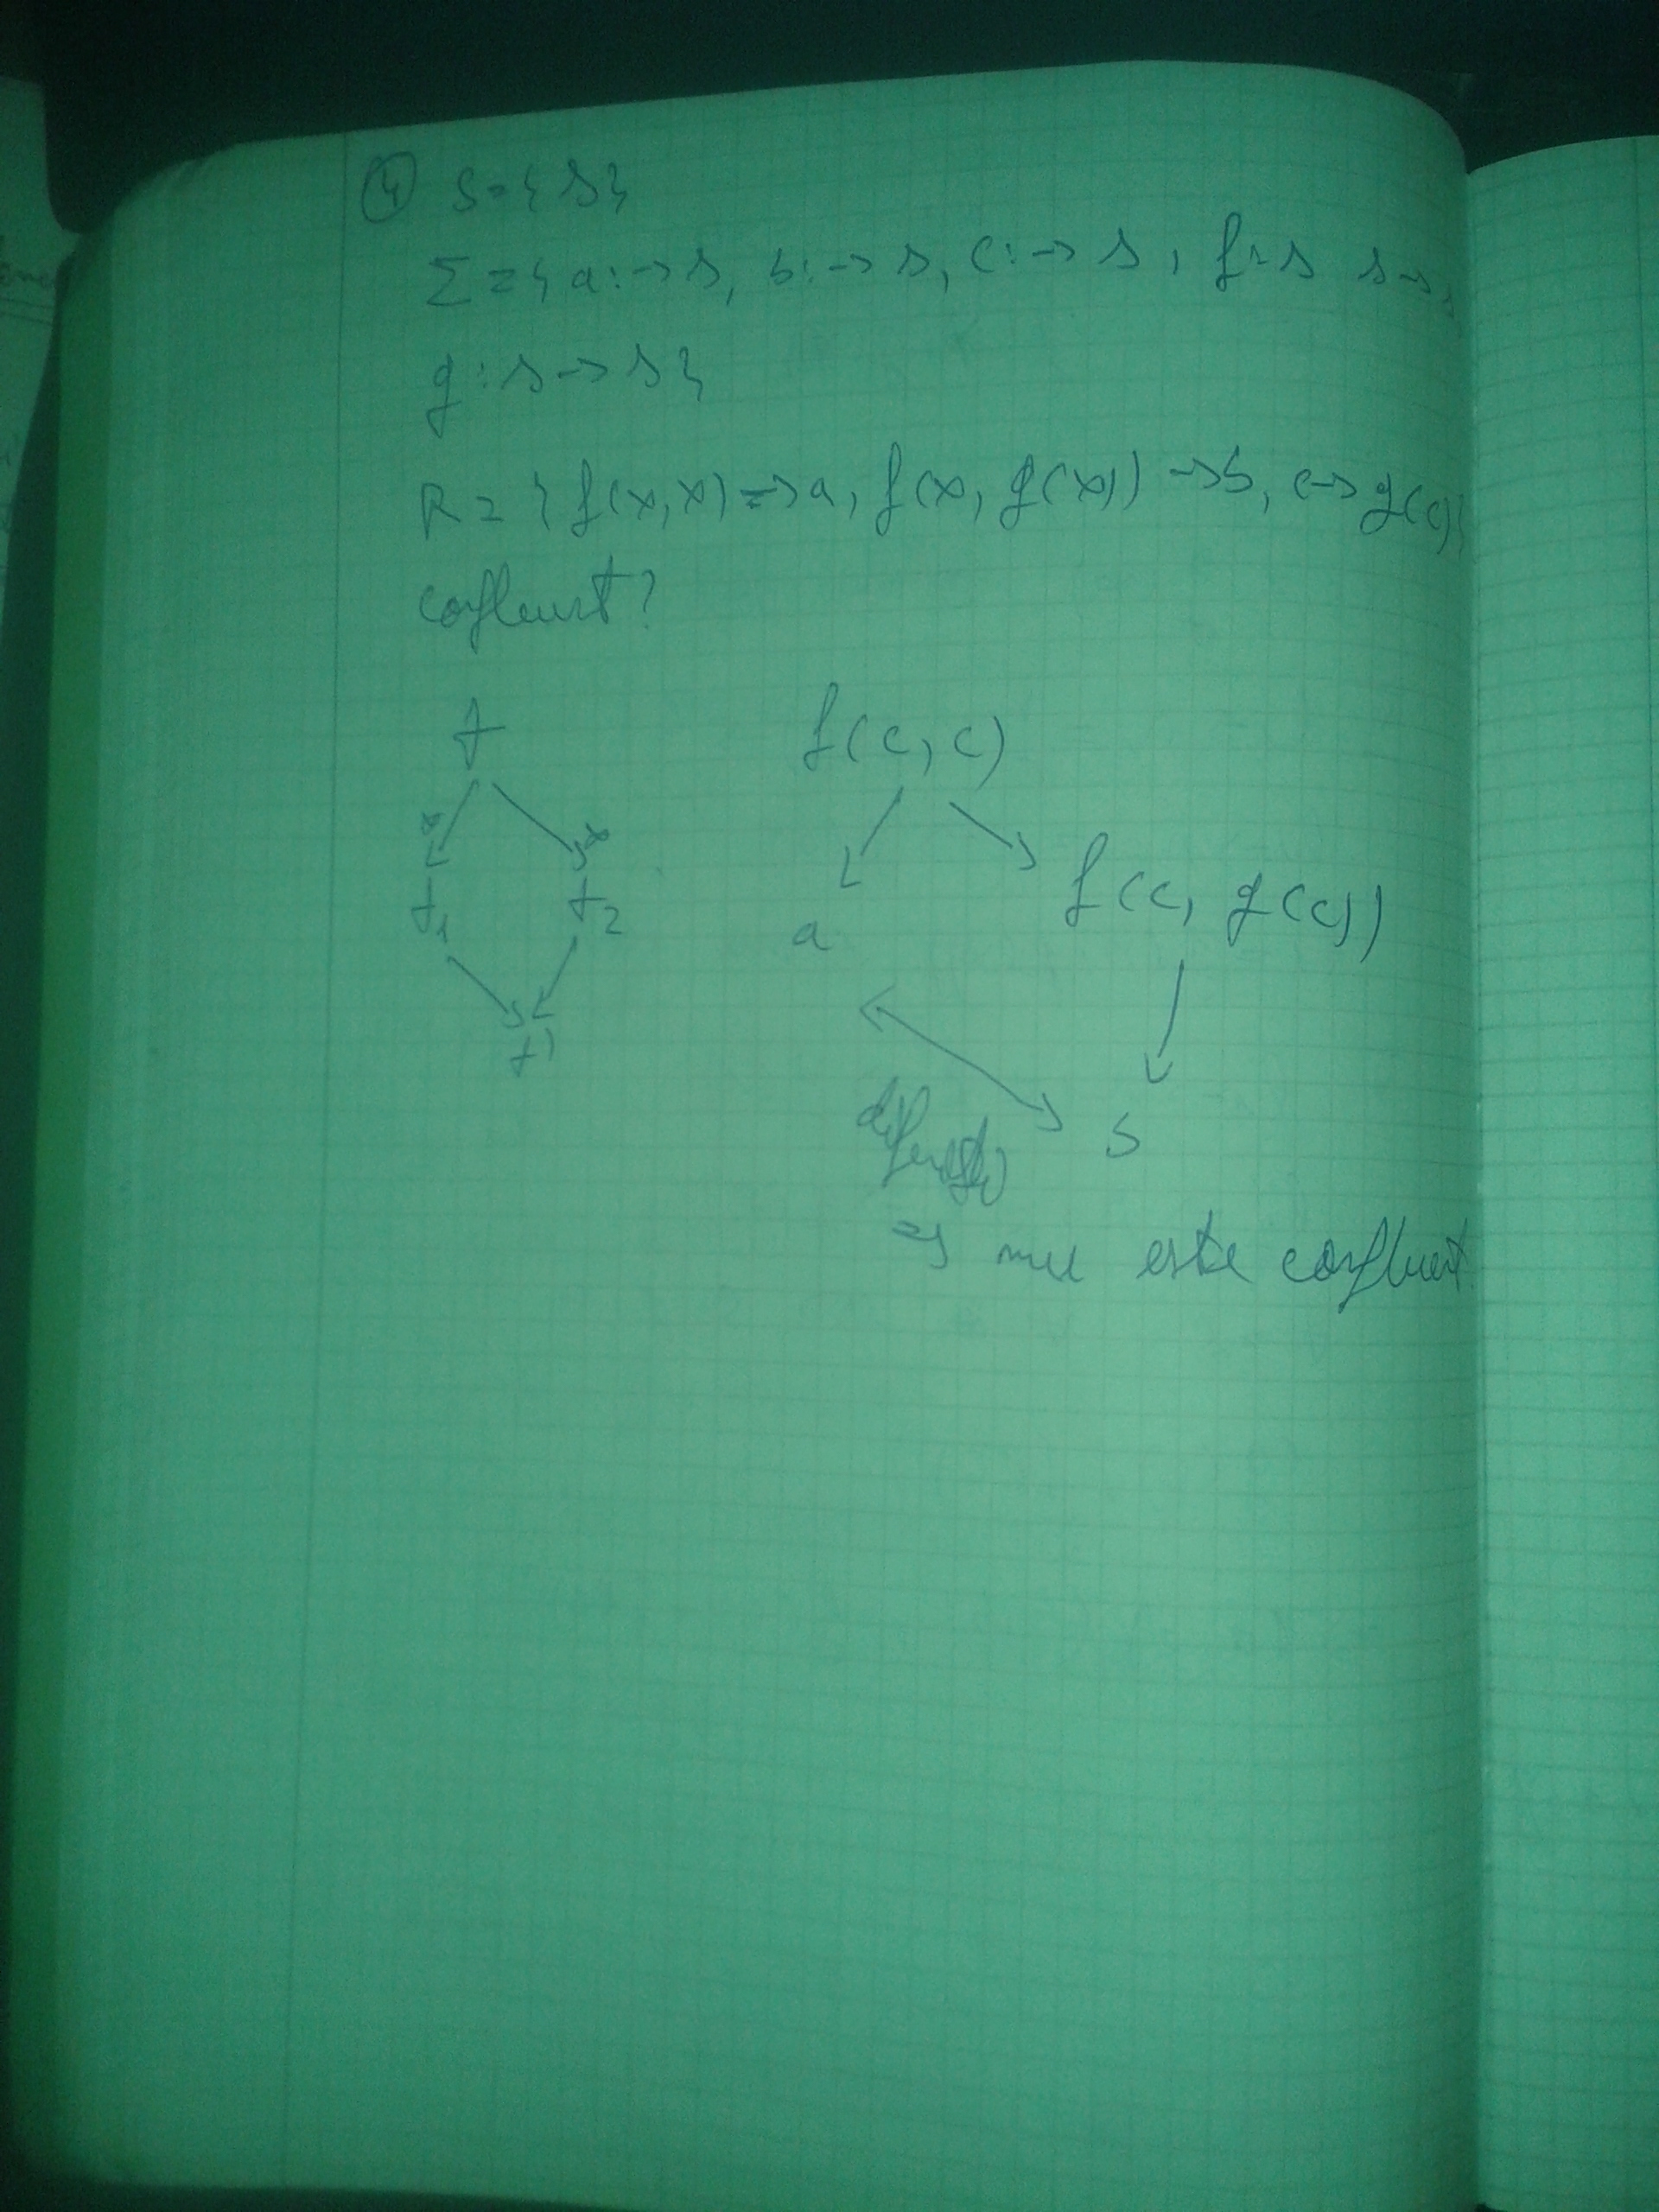 ④ S={s}
Σ={a:→s, b:→s, c:→s, f:s s→s,
g:s→s}
R={f(x,x)→a, f(x,g(x))→b, c→g(c)}
confluent?
t f(c,c)
* *
t1 t2 a f(c,g(c))
t'
b
=> nu este confluent